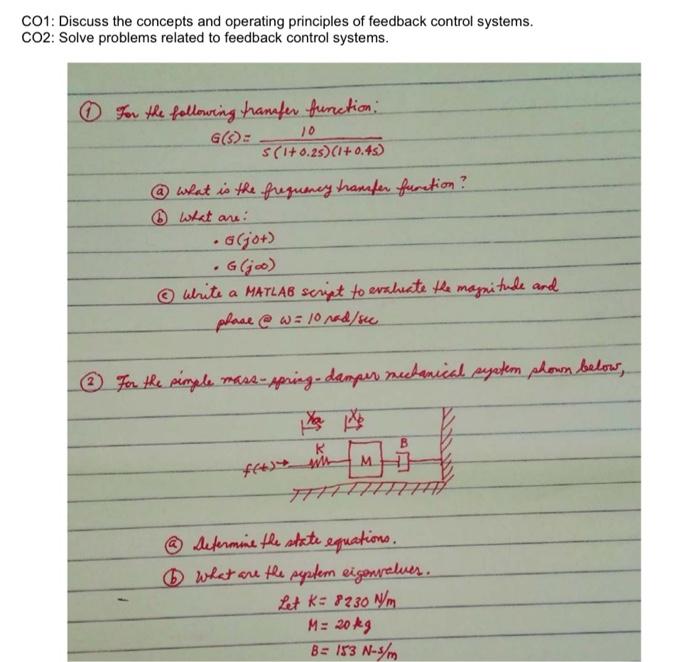 CO1: Discuss the concepts and operating principles of feedback control systems.
CO2: Solve problems related to feedback control systems.
① For the following transfer function:
G(s) = 10
S(1+0.2S)(1+0.4S)
ⓐ What is the frequency transfer function?
ⓑ What are:
• G(j0+)
• G(j∞)
ⓒ Write a MATLAB script to evaluate the magnitude and
phase @ ω = 10 rad/sec
② For the simple mass-spring-damper mechanical system shown below,
Xa Xb
K B
f(t)→ M
ⓐ Determine the state equations.
ⓑ What are the system eigenvalues.
Let K = 8230 N/m
M = 20 kg
B = 153 N-s/m